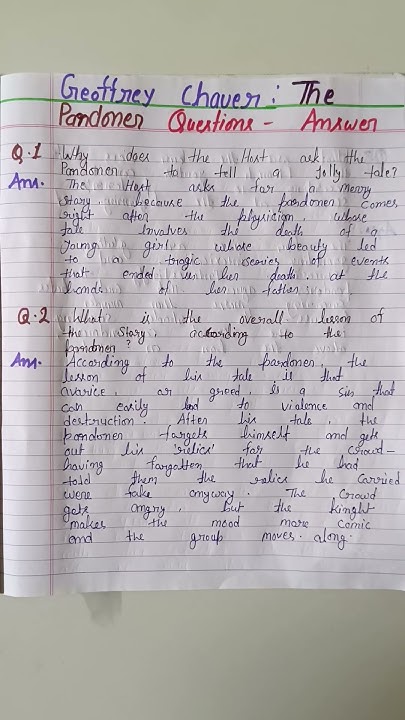 Geoffrey Chauer : The
Pandoner Questions - Answer
Q.1 Why does the Host ask the
Pandonen to tell a Jolly tale?
Ans. The Host asks for a merry
story because the pardonen comes
right after the physicion, whose
tale Involves the death of a
Young girl whose beauty led
to a tragic series of events
that ended in her death at the
hands of her father.
Q.2 What is the overall lesson of
the story, according to the
pandonen ?
Ans. According to the pandonen, the
lesson of his tale is that
avarice, or greed, is a sin that
can easily lead to violence and
destruction. After his tale, the
pandonen fargets himself and gets
out his 'relics' for the crowd-
having fargotten that he had
told them the relics he carried
were fake anyway. The Crowd
gets angry, but the kinght
makes the mood more comic
and the group moves along.